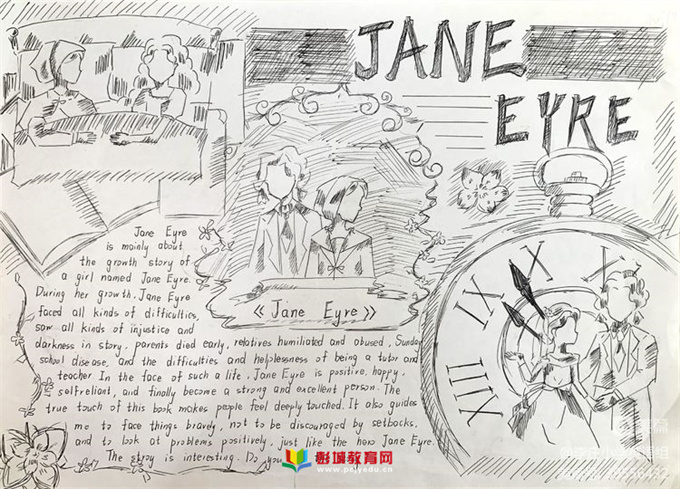 JANE
EYRE
《Jane Eyre》
Jane Eyre
is mainly about
the growth story of
a girl named Jane Eyre.
During her growth, Jane Eyre
faced all kinds of difficulties,
saw all kinds of injustice and
darkness in story. parents died early, relatives humiliated and abused, Sunday
school disease, and the difficulties and helplessness of being a tutor and
teacher In the face of such a life, Jane Eyre is positive, happy,
selfreliant, and finally become a strong and excellent person. The
true touch of this book makes people feel deeply touched. It also guides
me to face things bravely, not to be discouraged by setbacks,
and to look at problems positively, just like the hero Jane Eyre.
The stroy is interesting. Do you
X
XI
XII
彭城教育网
www.pcjyedu.cn